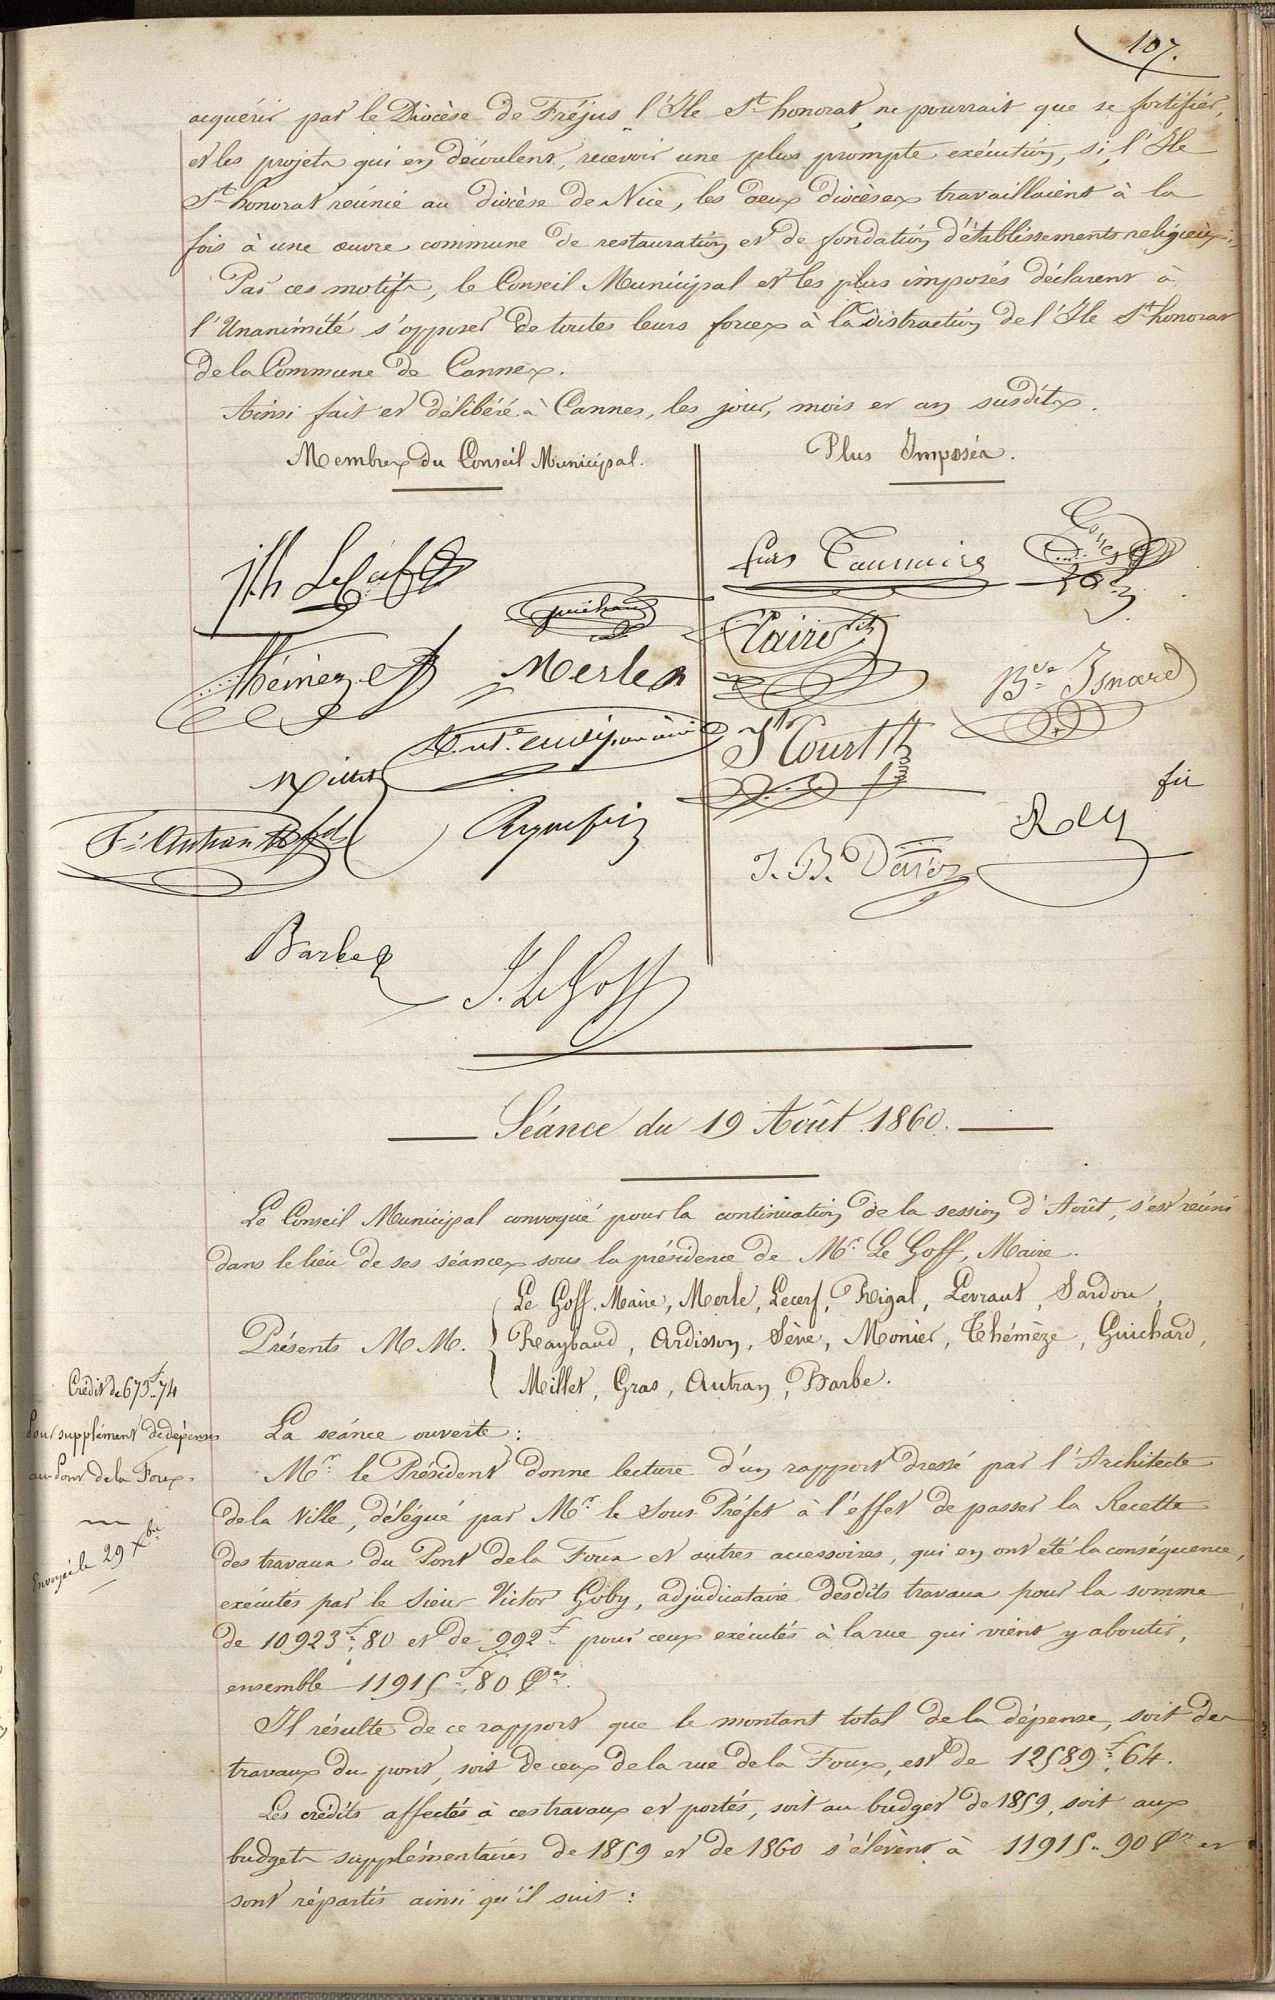 107.
acquérir par le Diocèse de Fréjus l'Ile St honorat, ne pourrait que se fortifier,
et les projets qui en découlent, recevoir une plus prompte exécution, si, l'Ile
St honorat réunie au diocèse de Nice, les deux diocèses travaillaient à la
fois à une œuvre commune de restauration et de fondation d'établissements religieux.
Par ces motifs, le Conseil Municipal et les plus imposés déclarent à
l'Unanimité s'opposer de toutes leurs forces à la distraction de l'Ile St honorat
de la Commune de Cannes.
Ainsi fait et délibéré à Cannes, les jour, mois et an susdits.
Membres du Conseil Municipal.
Plus Imposés.
Guichard
Merle
Bue Isnard
Millet
Court
fils
Rey
J. B.
Barbe
J. Le Goff
Séance du 19 Août 1860.
Le Conseil Municipal convoqué pour la continuation de la session d'Août, s'est réuni
dans le lieu de ses séances sous la présidence de Mr Le Goff, Maire.
Le Goff, Maire, Merle, Lecerf, Rigal, Levraut, Sardou,
Présents M M. Raybaud, Ardisson, Sève, Monier, Thémèze, Guichard,
Millet, Gras, Autran, Barbe.
Crédit de 673f 74
Pour supplément de dépenses
au Pont de la Foux.
Envoyé le 29 Xbre
La séance ouverte :
Mr le Président donne lecture d'un rapport dressé par l'Architecte
de la Ville, délégué par Mr le Sous Préfet à l'effet de passer la Recette
des travaux du Pont de la Foux et autres accessoires, qui en ont été la conséquence,
exécutés par le Sieur Victor Goby, adjudicataire desdits travaux pour la somme
de 10923f,80 et de 992f pour ceux exécutés à la rue qui vient y aboutir,
ensemble 11915f,80 Ces.
Il résulte de ce rapport que le montant total de la dépense, soit des
travaux du pont, soit de ceux de la rue de la Foux, est de 12589f,64.
Les crédits affectés à ces travaux et portés, soit au budget de 1859, soit aux
budgets supplémentaires de 1859 et de 1860 s'élèvent à 11915.90 Ces et
sont répartis ainsi qu'il suit :